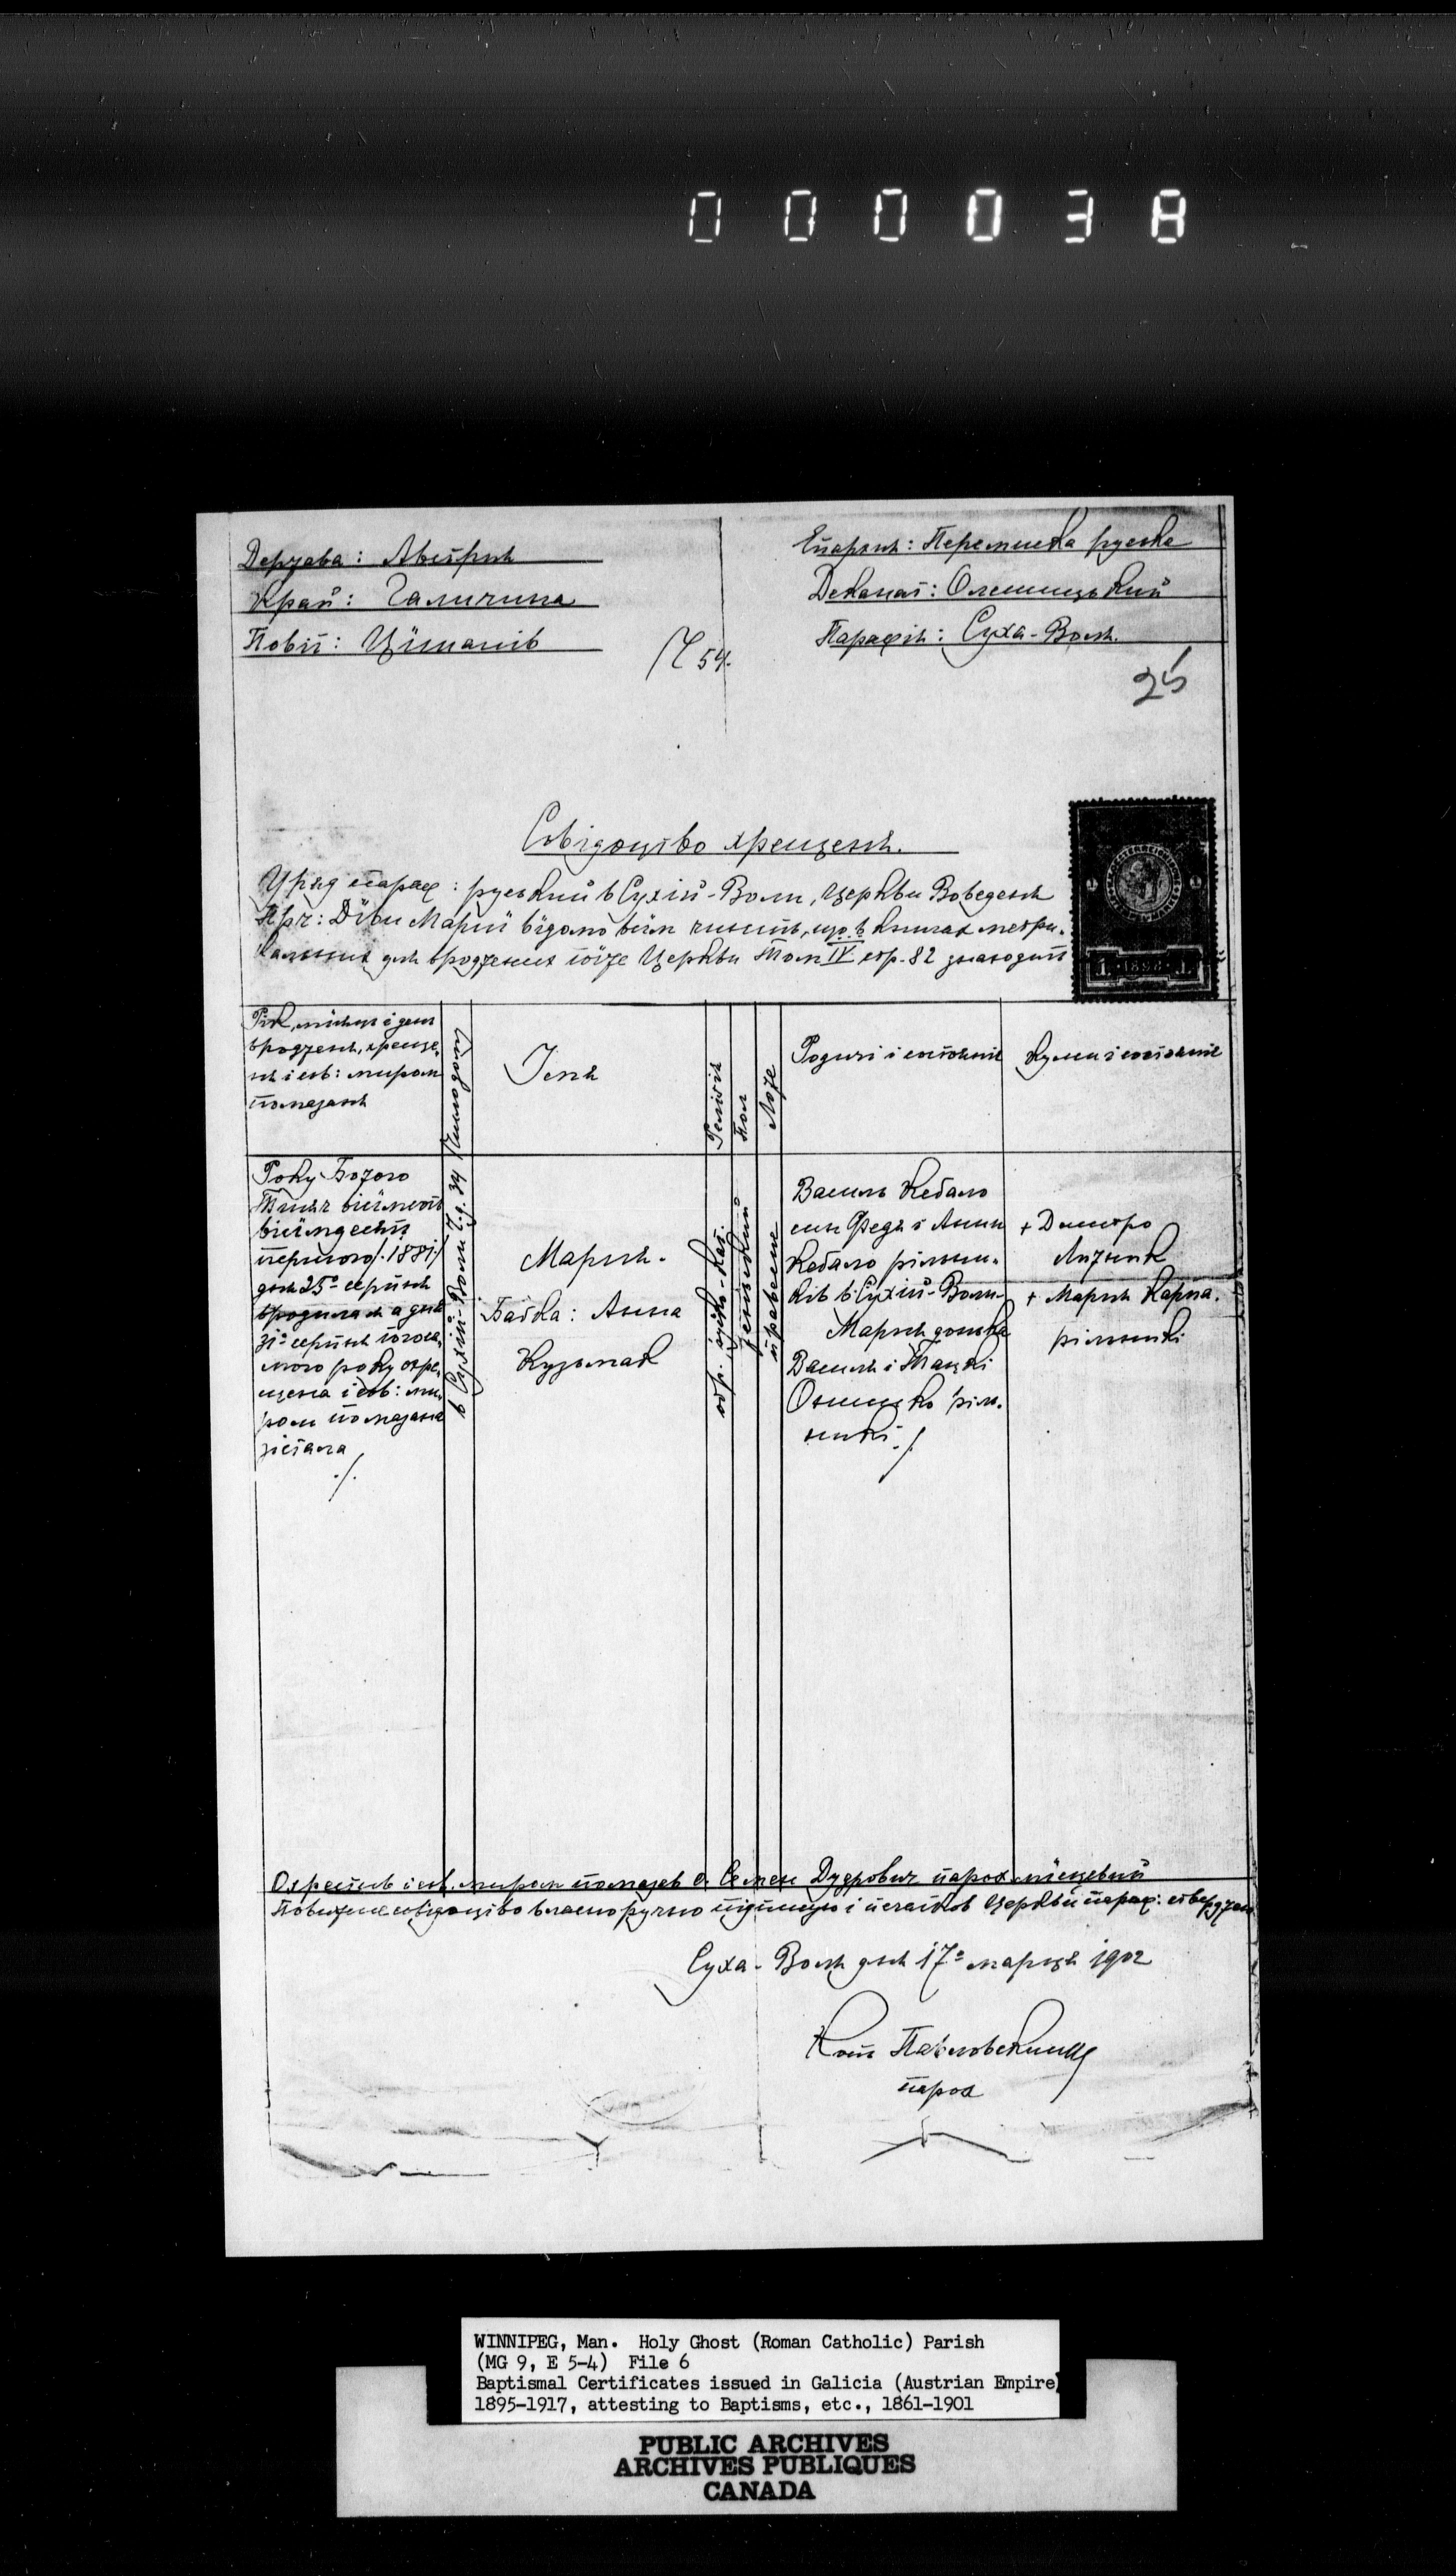 000038
Держава: Австрия
Край: Галичина
Повіт: Цїшанів
Епархия: Перемиска руска
Деканат: Олешицький
Парафія: Суха-Воля.
Ч 54.
25
Совідоцтво хрещеня.
Уряд парах: руский в Сухій-Воли, Церкви Воведеня
Прч: Дїви Марії відомо всїм чинить, що в книгах метри-
кальних для вроджених тойже Церкви Том IV стр. 82 знаходит
Рік, місяць і день
вродженя, хреще-
ня і св: миром
помазаня
Число дому
Імя
Релїгія
Пол
Ложе
Родичі і состояниє
Куми і состояниє
Року Божого
Тисяч вісїмсот
вісїмдесят
першого /1881/
дня 25го серпня
вродилася а дня
31го серпня тогоса-
мого року охре-
щена і св: ми-
ром помазана
зістала
./.
в Сухій-Воли ч.д. 34
Мария.
Бабка: Анна
Кузьмак
обр. гр.-кат.
женьский
правене
Василь Кебало
син Федя і Анни
Кебало рільни-
ків в Сухій-Воли
Мария донька
Василя і Тацкі
Онишко піль-
ників ./.
+ Дмитро
Лизняк
+ Мария Карпа-
рільники
Охрестив і св. миром помазав о. Семен Дудрович парох місцевий
Повисше совідоцтво власноручно підписую і печатков Церкви парах: стверджаю
Суха-Воля дня 17го марця 1902
парох
WINNIPEG, Man. Holy Ghost (Roman Catholic) Parish
(MG 9, E 5-4) File 6
Baptismal Certificates issued in Galicia (Austrian Empire)
1895-1917, attesting to Baptisms, etc., 1861-1901
PUBLIC ARCHIVES
ARCHIVES PUBLIQUES
CANADA